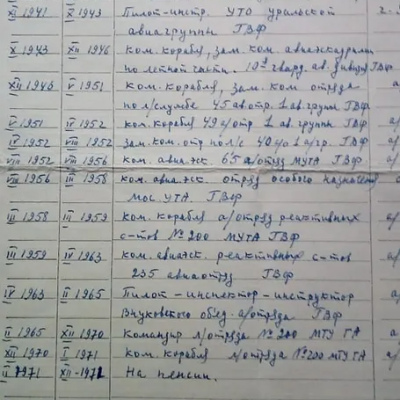 XI 1941 X 1943 Пилот-инстр. УТО уральской
авиагруппы ГВФ
X 1943 XII 1946 ком. корабля, зам. ком. авиаэскадрильи
по летной части. 10й гвард. ав. дивизии ГВФ
XII 1946 V 1951 ком. корабля, зам. ком. отряда
по л/службе 45 ав отр. 1 ав. группы ГВФ
V 1951 IV 1952 ком. корабля 49 а/отр 1 ав. группы ГВФ
IV 1952 VIII 1952 зам. ком. отр по л/с 40 1 а/гр. ГВФ
VIII 1952 VIII 1956 ком. авиаэск. 65 а/отряд МУТА ГВФ
VIII 1956 III 1958 ком. авиаэск. отряд особого назначен
мос. УТА. ГВФ
III 1958 III 1959 ком. корабля а/отряд реактивных
с-тов № 200 МУТА ГВФ
III 1959 IV 1963 ком. авиаэск. реактивных с-тов
235 авиаотряд ГВФ
IV 1963 II 1965 Пилот-инспектор-инструктор
Внуковского объед. а/отряда ГВФ
II 1965 XII 1970 Командир л/отряда № 200 МТУ ГА
XII 1970 I 1971 ком. корабля л/отряда № 200 МТУ ГА
II 1971 XII-1971 На пенсии.